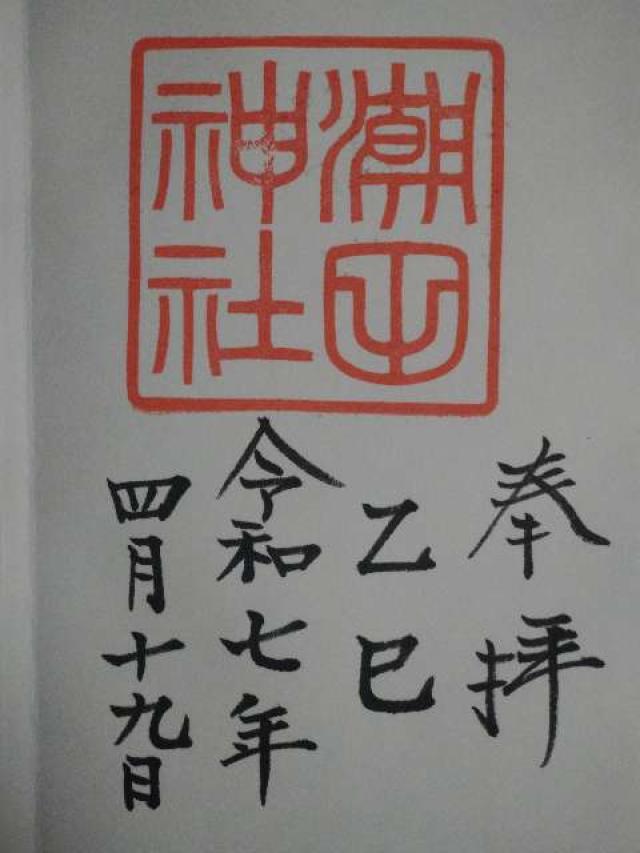 潮田
神社
奉拝
乙巳
令和七年
四月十九日